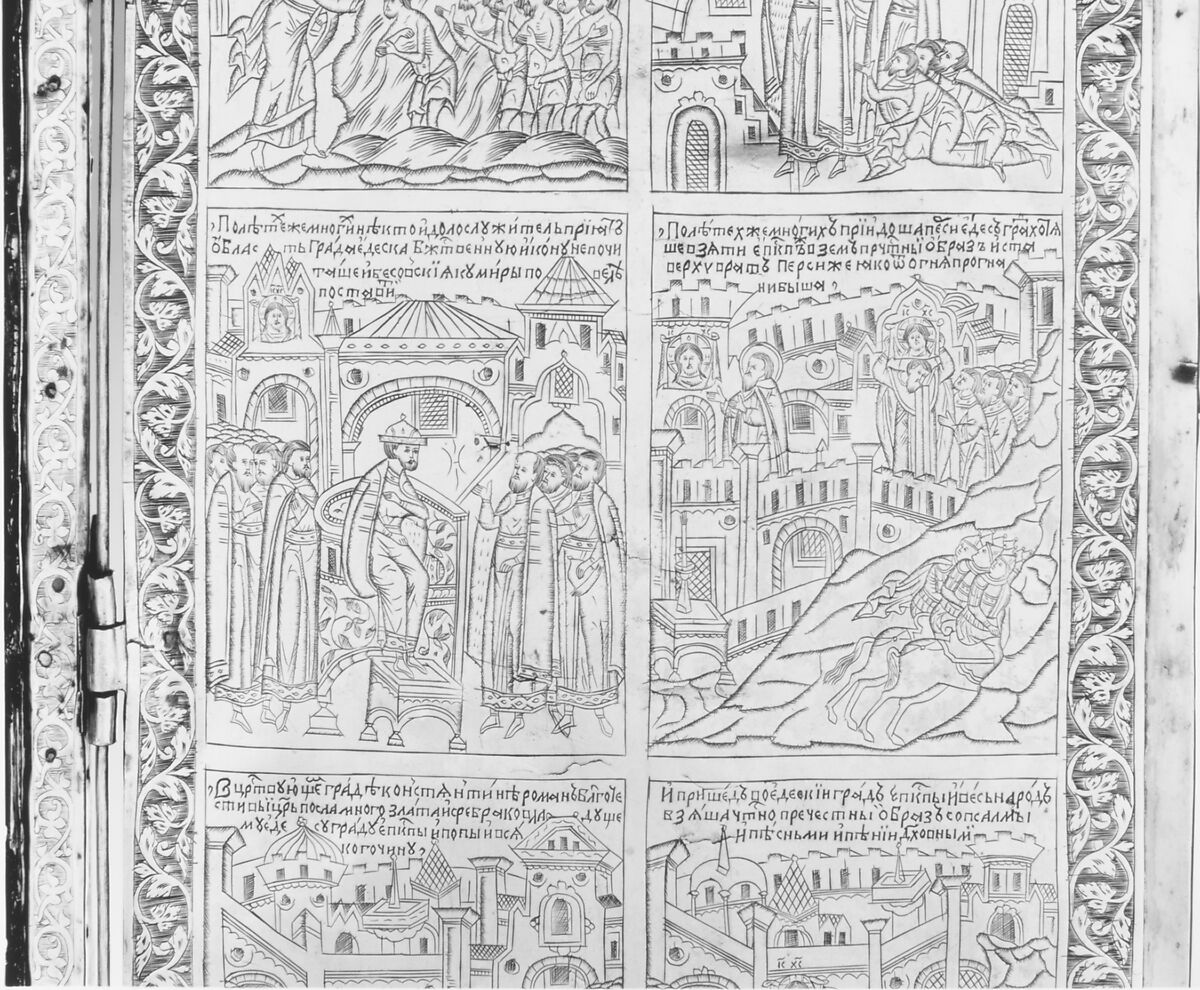 По лѣтехже многи нѣкто идолослужитель прїятъ
область града едеска бжтвенную икону непочи
таше и бесовскїя кумиры по
постави
ІС ХС
По лѣтехже многихъ прїидоша персї едесъ градъ
взяти епкпъ возему пречтныи образъ и ста
верху вратъ персиже яко ѿ огня прогна
ни быша
ІС ХС
В црствующе градѣ констянтинѣ романъ блгоче
стивыи црь посла много злата и сребра ко
му едесу граду епкпы и попы и вся
кого чину
И пришедъ во едескїи градъ епкпы и весь народъ
взяша чтно пречестны образъ со псалмы
и пѣсньми и пѣнїи дховными
ІС ХС